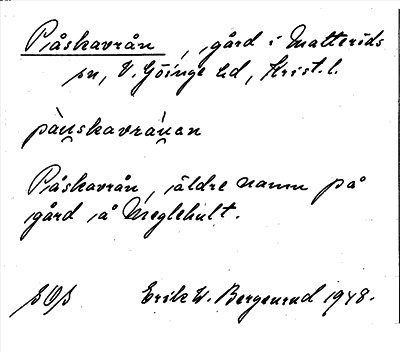 Påskavrån, gård i Matteröds
sn, V. Göinge hd, Krist. l.
pànskavránan
Påskavrån, äldre namn på
gård å Meglehult.
SOS Erik W. Bergenrud 1948.